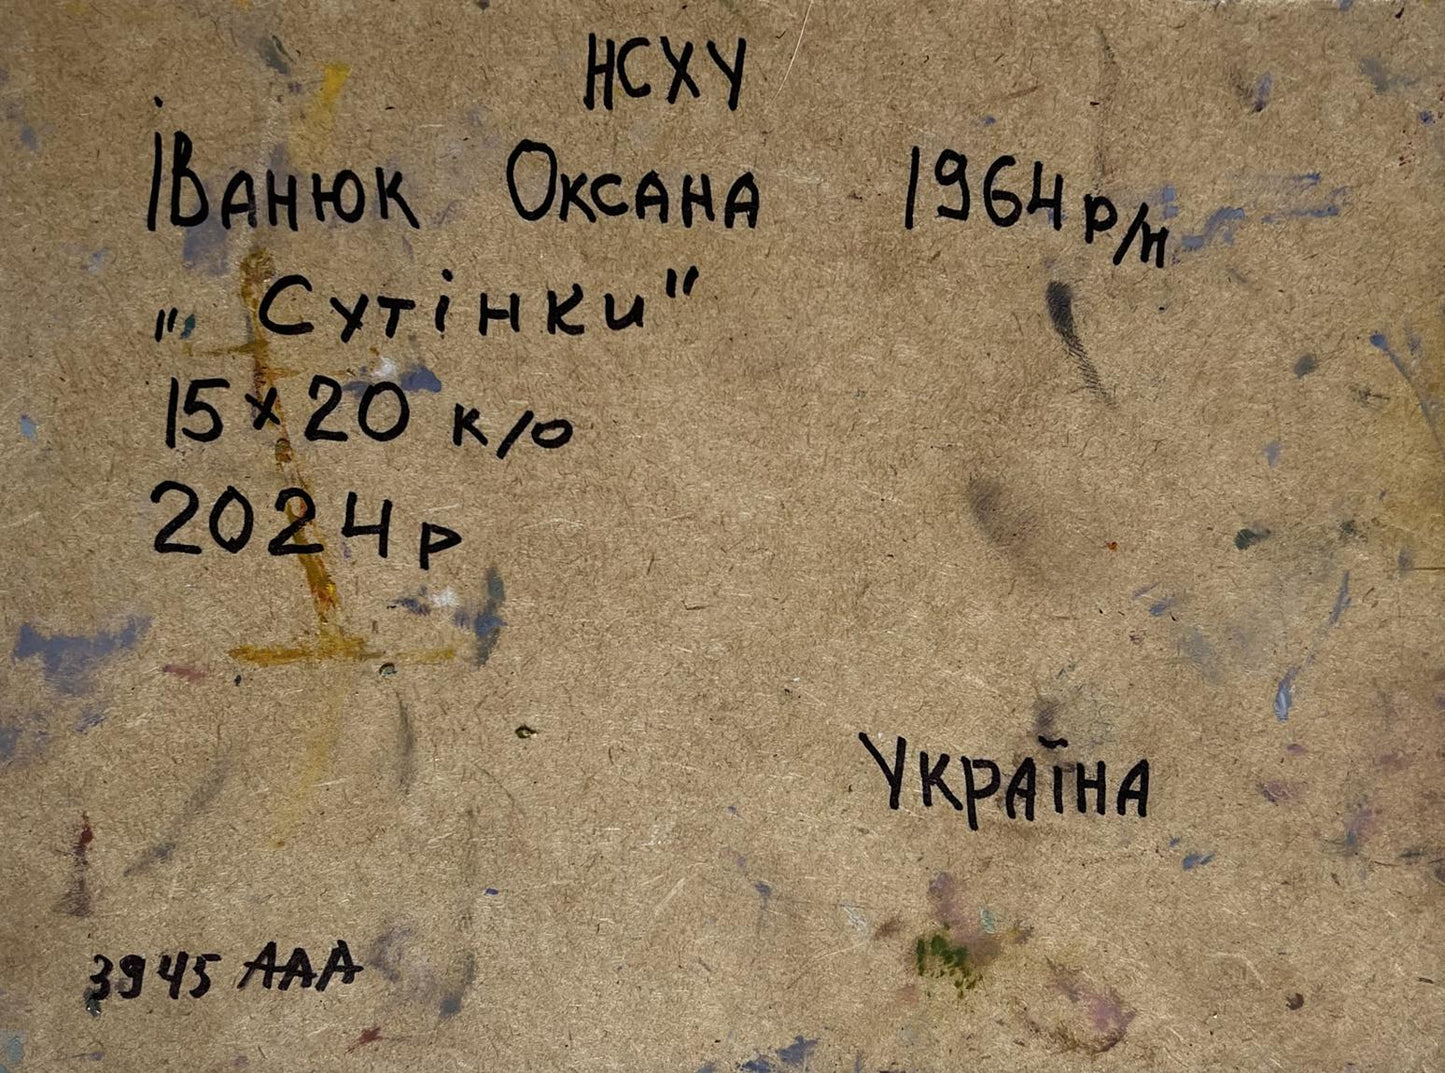 НСХУ
Іванюк Оксана 1964 р/н
„Сутінки"
15×20 к/о
2024 р
Україна
3945 AAA